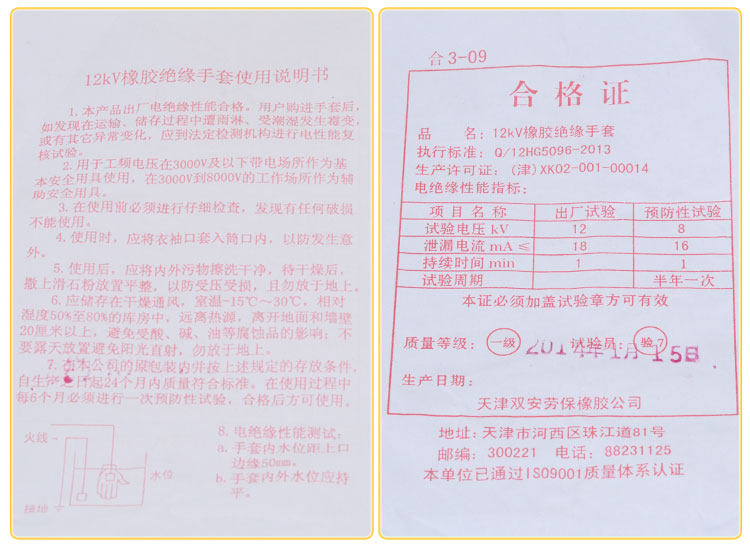 12kV橡胶绝缘手套使用说明书
1. 本产品出厂电绝缘性能合格。用户购进手套后,
如发现在运输、储存过程中遭雨淋、受潮湿发生霉变,
或有其它异常变化,应到法定检测机构进行电性能复
核试验。
2. 用于工频电压在3000V及以下带电场所作为基
本安全用具使用,在3000V到8000V的工作场所作为辅
助安全用具。
3. 在使用前必须进行仔细检查,发现有任何破损
不能使用。
4. 使用时,应将衣袖口套入筒口内,以防发生意
外。
5. 使用后,应将内外污物擦洗干净,待干燥后,
撒上滑石粉放置平整,以防受压受损,且勿放于地上。
6. 应储存在干燥通风,室温-15℃～30℃,相对
湿度50%至80%的库房中,远离热源,离开地面和墙壁
20厘米以上,避免受酸、碱、油等腐蚀品的影响;不
要露天放置避免阳光直射,勿放于地上。
7. 在本公司的原包装内并按上述规定的存放条件,
自生产之日起24个月内质量符合标准。在使用过程中
每6个月必须进行一次预防性试验,合格后方可使用。
火线
水位
接地
8. 电绝缘性能测试:
a. 手套内水位距上口
边缘50mm。
b. 手套内外水位应持
平。
合3-09
合格证
品 名:12kV橡胶绝缘手套
执行标准:Q/12HG5096-2013
生产许可证:(津)XK02-001-00014
电绝缘性能指标:
项目名称 出厂试验 预防性试验
试验电压 kV 12 8
泄漏电流 mA ≤ 18 16
持续时间 min 1 1
试验周期 半年一次
本证必须加盖试验章方可有效
质量等级:一级 试验员:验7
2014年1月15日
生产日期:
天津双安劳保橡胶公司
地址:天津市河西区珠江道81号
邮编:300221 电话:88231125
本单位已通过ISO9001质量体系认证